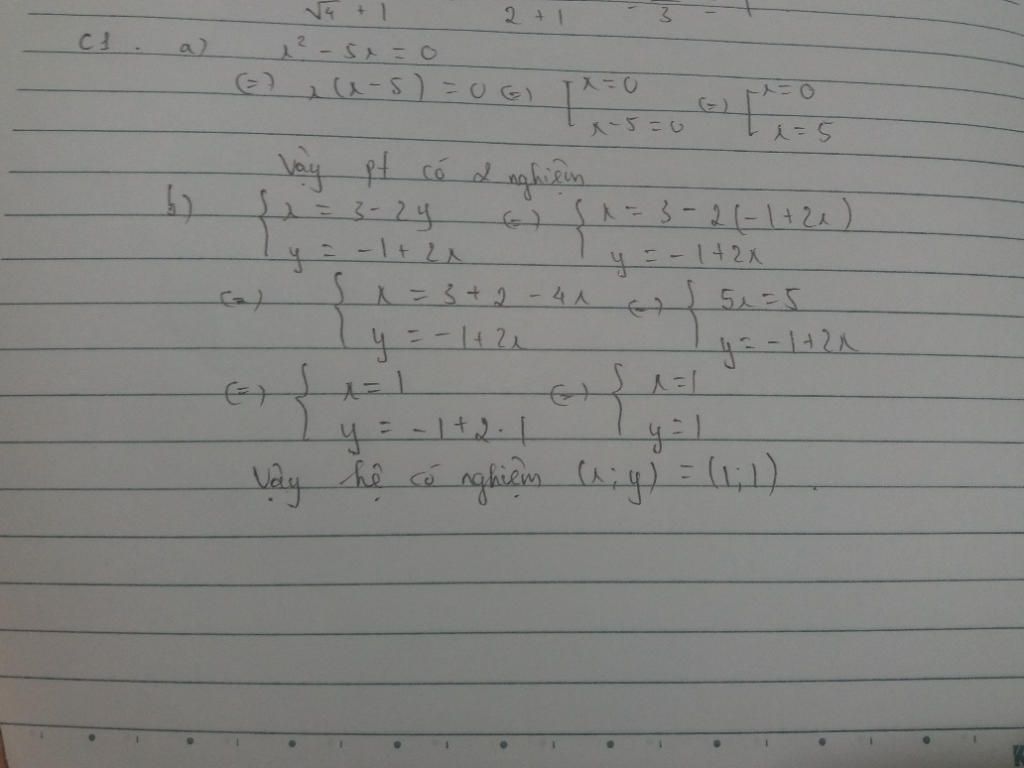 √4 + 1 2 + 1 3
C1. a) x² - 5x = 0
(=) x(x-5) = 0 (=) [ x = 0 (=) [ x = 0
x - 5 = 0 x = 5
Vậy pt có 2 nghiệm
b) { x = 3 - 2y (=) { x = 3 - 2(-1+2x)
y = -1 + 2x y = -1 + 2x
(=) { x = 3 + 2 - 4x (=) { 5x = 5
y = -1 + 2x y = -1 + 2x
(=) { x = 1 (=) { x = 1
y = -1 + 2.1 y = 1
Vậy hệ có nghiệm (x; y) = (1; 1).